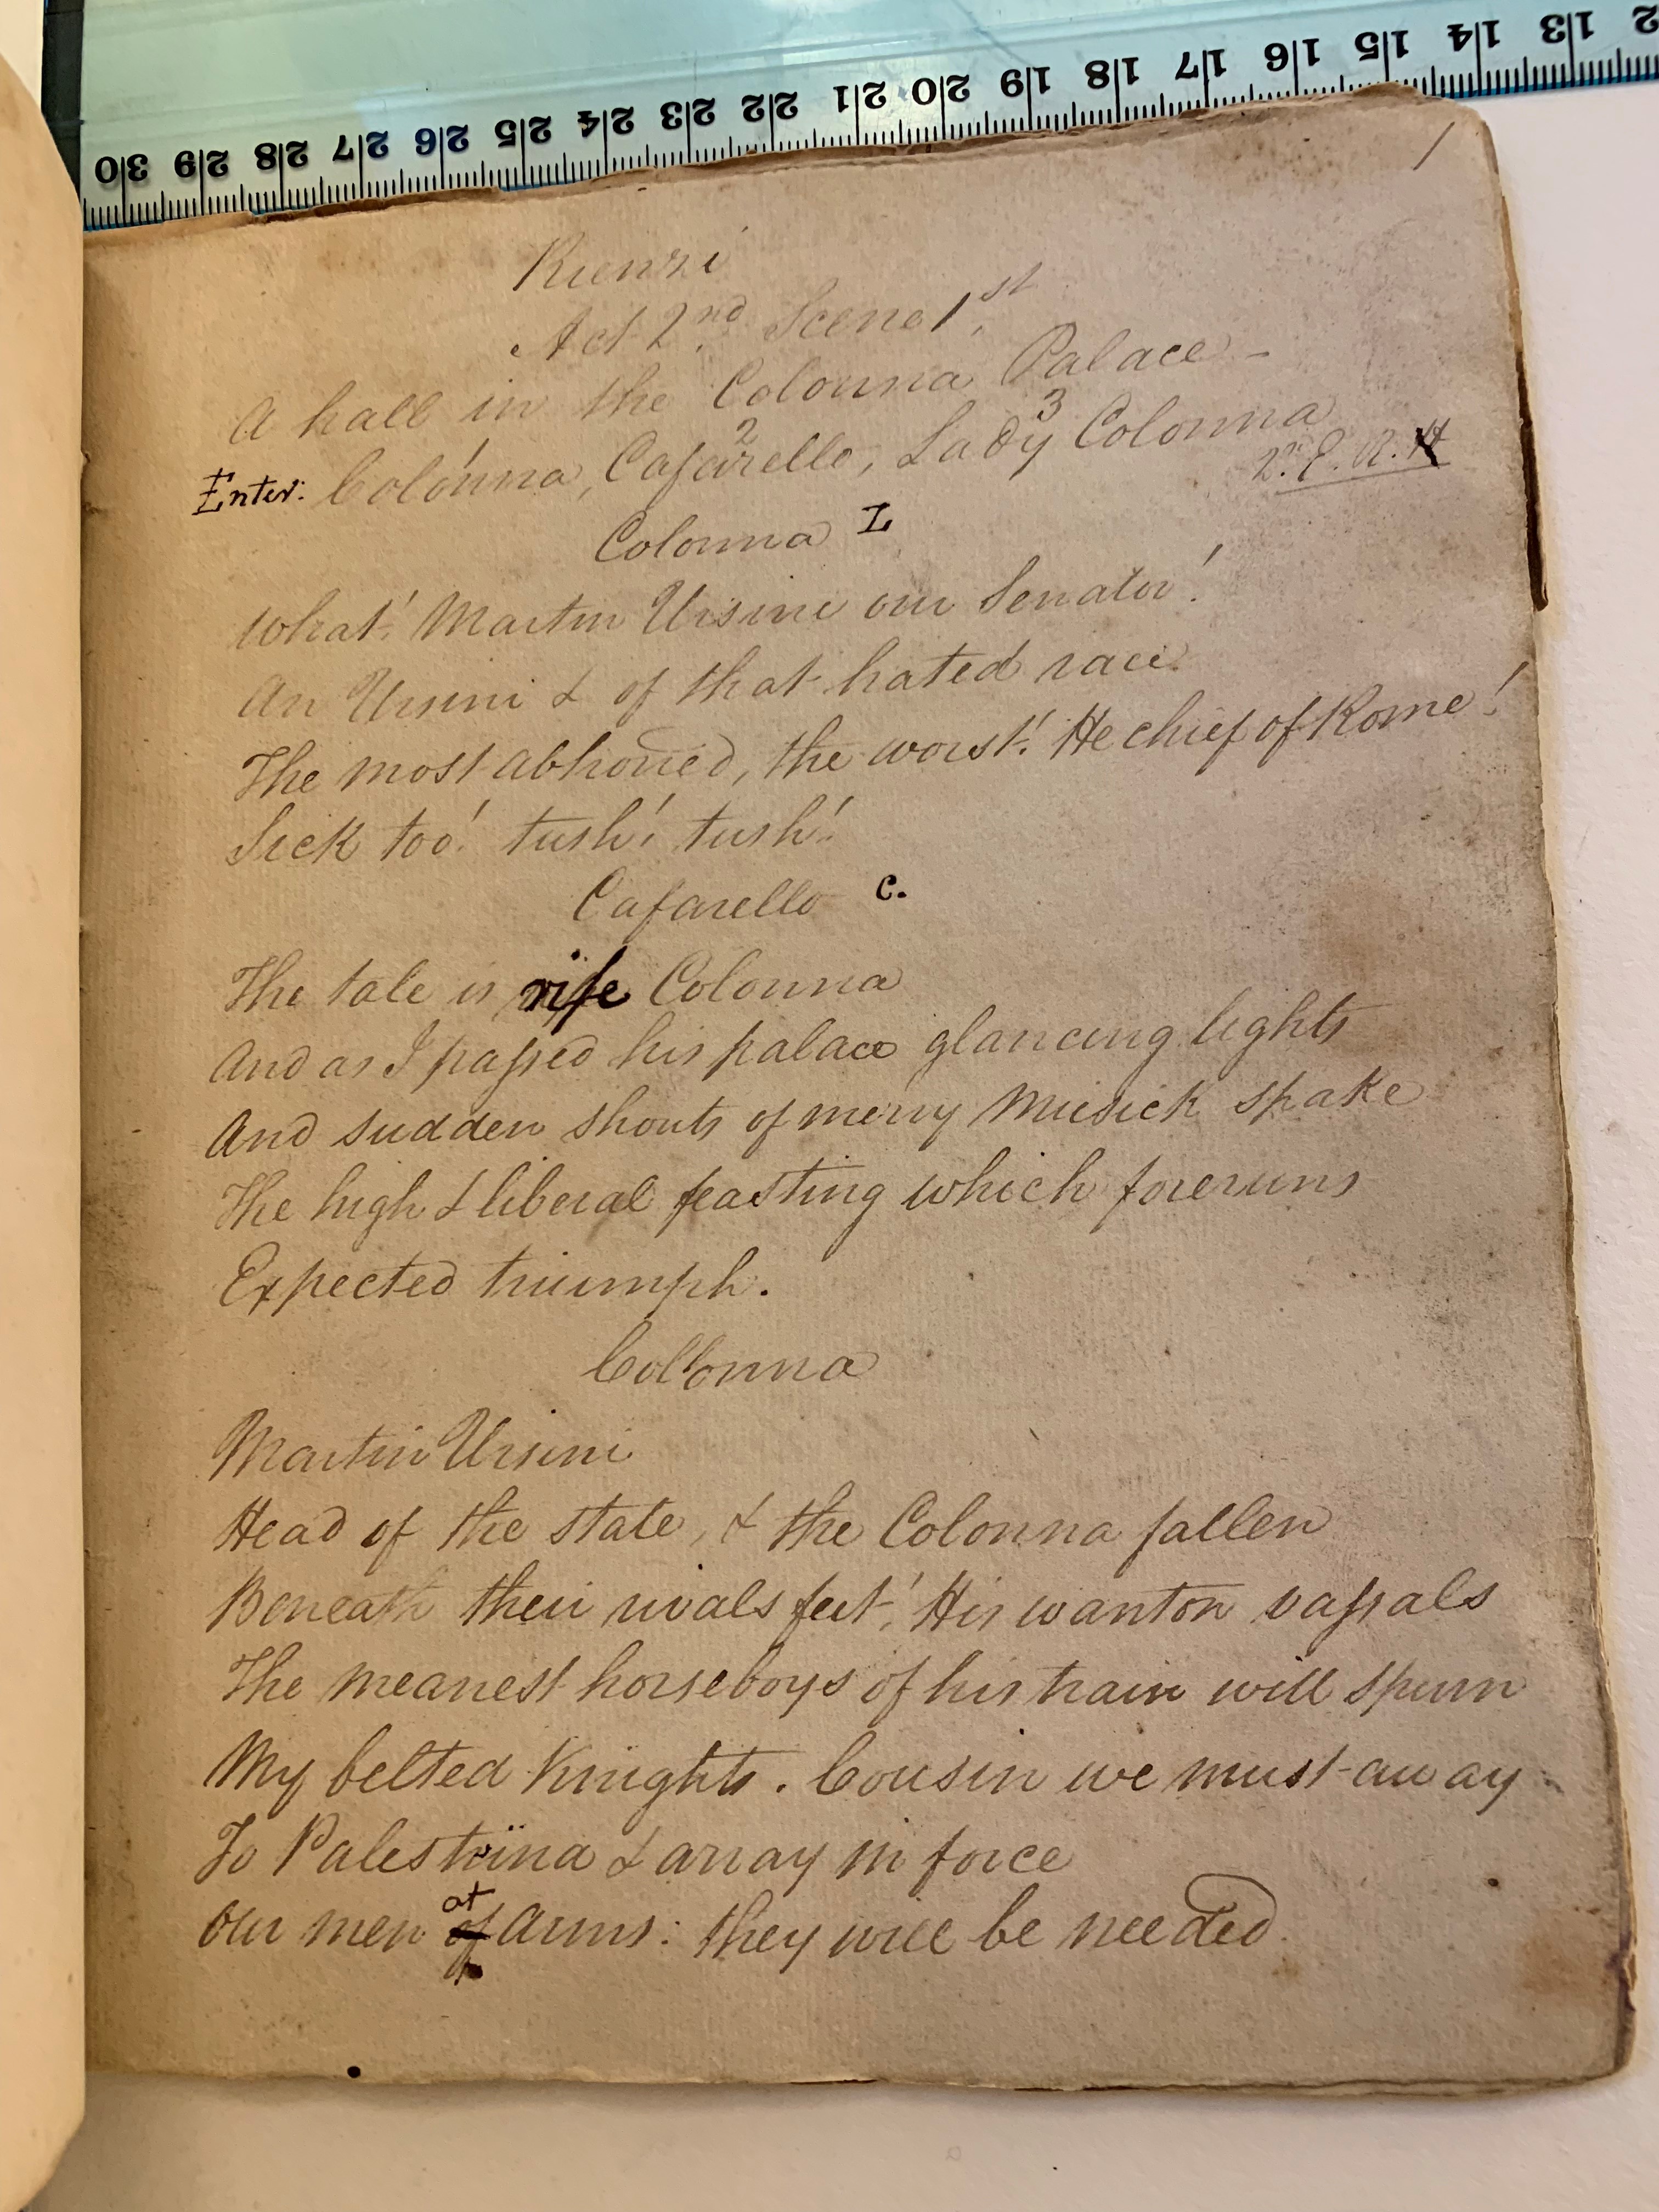 30 29 28 27 26 25 24 23 22 21 20 19 18 17 16 15 14 13 12
1
Rienzi
Act 2nd. Scene 1st.
A hall in the Colonna Palace -
1 2 3
Enter: Colonna, Cafarello, Lady Colonna
2. E. R. H
Colonna L
What! Martin Ursini our Senator!
An Ursini & of that hated race
The most abhorred, the worst! He chief of Rome!
Sick too! tush! tush!
Cafarello C.
The tale is rife Colonna
And as I passed his palace glancing lights
And sudden shouts of merry Musick spake
The high & liberal feasting which foreruns
Expected triumph.
Collonna
Martin Ursini
Head of the state, & the Colonna fallen
Beneath their rivals feet! His wanton vassals
The meanest horseboys of his train will spurn
My belted Knights. Cousin we must away
To Palestrina & array in force
Our men of at Arms: they will be needed.